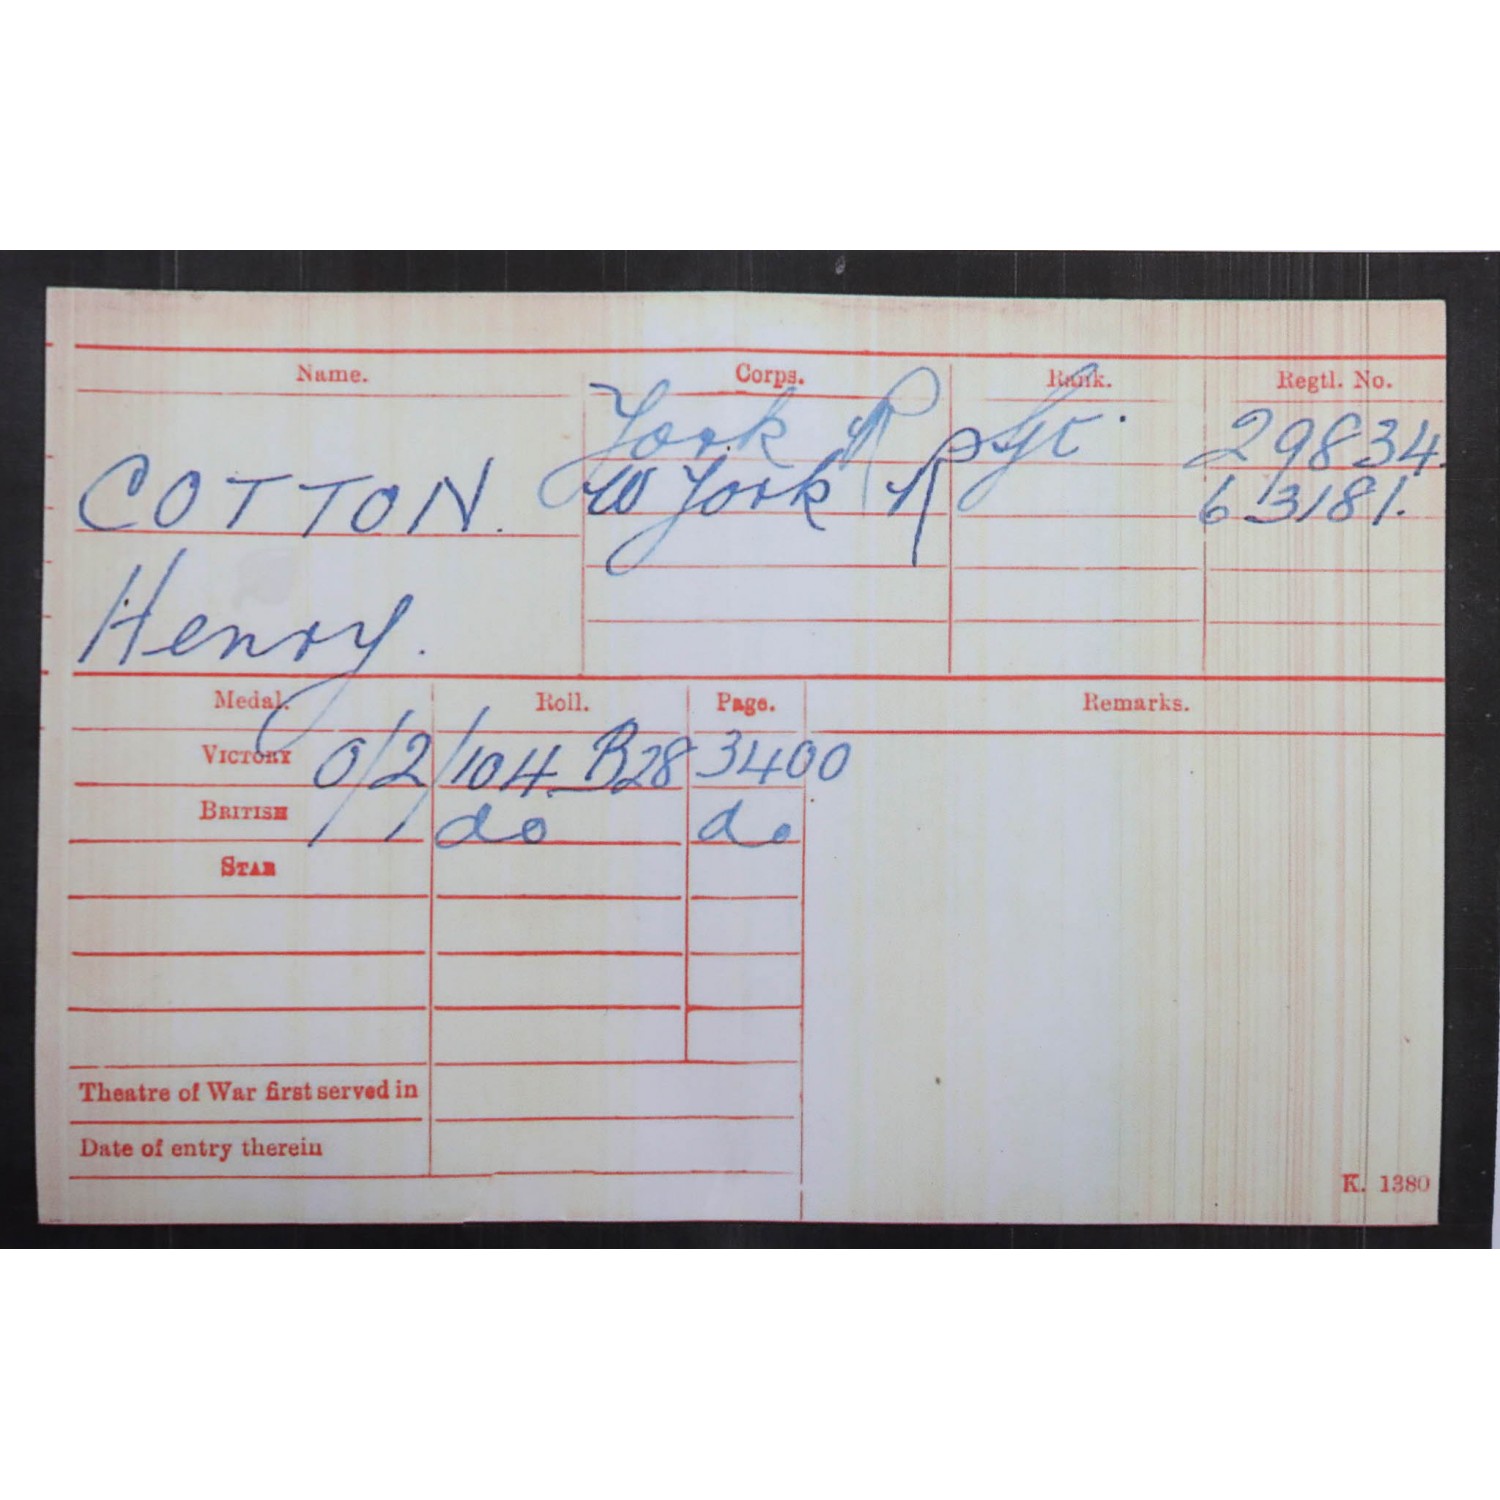 Name. Corps. Rank. Regtl. No.
York R Sjt. 29834.
COTTON. W York R 63181.
Henry.
Medal. Roll. Page. Remarks.
VICTORY O/2/104 B28 3400
BRITISH do do
STAR
Theatre of War first served in
Date of entry therein
K. 1380